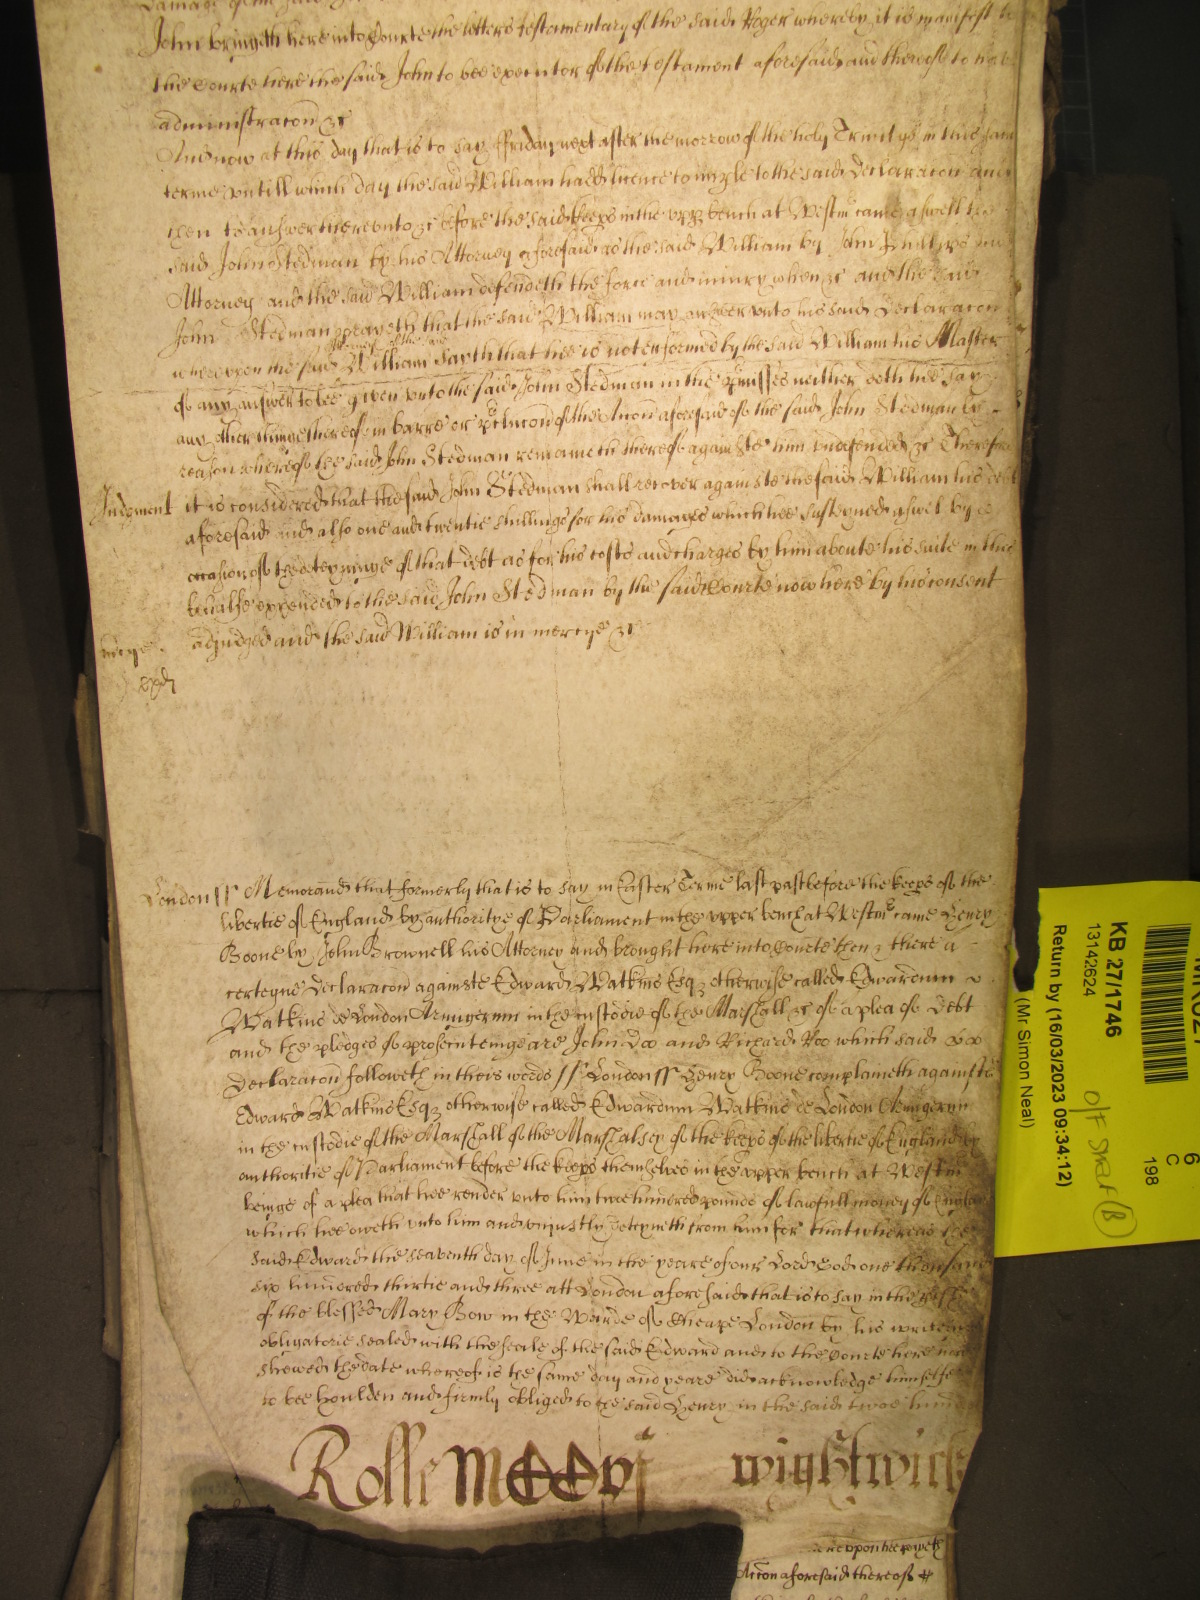 John bringeth here into Courte the letters testamentary of the said Roger whereby it is manifest to
the Courte here the said John to bee executor of the testament aforesaid and thereof to have
administracon &c
And now at this day that is to say ffriday next after the morrow of the holy Trinitye in this same
terme untill which day the said William hadd licence to imparle to the said Declaracon and
then to answer thereunto &c before the said Keeps in the upp bench at Westm came aswell the
said John Stedman by his Attorney aforesaid as the said William by John his
Attorney and the said William defendeth the force and iniury when &c and the said
John Stedman prayeth that the said William may answer unto his said Declaracon
whereupon the said Attorney of the said William sayth that hee is not enformed by the said William his Master
of any answer to bee given unto the said John Stedman in the pmisses neither doth hee say
any other thinge thereof in barre or pclucon of the Accon aforesaid of the said John Stedman by
reason whereof the said John Stedman remaineth thereof againste him undefended &c Therefore
Judgment it is considered that the said John Stedman shall recover againste the said William his debt
aforesaid and also one and twentie shillings for his damages which hee susteyned aswel by
occasion of the deteyninge of that debt as for his costs and charges by him aboute his suite in this
behalfe expended to the said John Stedman by the said Courte now here by his consent
mercye adiudged and the said William is in mercye &c
London ss Memorand that formerly that is to say in Easter Terme last past before the Keeps of the
libertie of England by authoritye of Parliament in the upper bench at Westm came Henry
Boone by John Brownell his Attorney and brought here into Courte then & there a
certeyne Declaracon againste Edward Watkins Esq otherwise called Edwardum
Watkins de London Armigerum in the custodie of the Marshall &c of a plea of Debt
and the pledges of prosecuteinge are John Doo and Richard Roo which said
Declaracon followeth in theis words ss London ss Henry Boone complaineth against
Edward Watkins Esq otherwise called Edwardum Watkins de London Armigerum
in the custodie of the Marshall of the Marshalsey of the Keeps of the libertie of England by
authoritie of Parliament before the Keeps themselves in the upper bench at Westm
beinge of a plea that hee render unto him twoe hundred pounds of lawfull money of England
which hee oweth unto him and uniustly deteyneth from him for that whereas the
said Edward the seaventh day of June in the yeare of our Lord God one thousand
six hundred thirtie and three att London aforesaid that is to say in the pish
of the blessed Mary Bow in the Warde of Cheape London by his writeing
obligatorie sealed with the seale of the said Edward and to the Courte here now
shewed the date whereof is the same day and yeare did acknowledge himselfe
to bee houlden and firmly obliged to the said Henry in the said twoe hundred
Rolle Moor Wightwick
upon hee
Accon aforesaid thereof
KB 27/1746
13142624
Return by (16/03/2023 09:34:12)
(Mr Simon Neal)
6
C
198